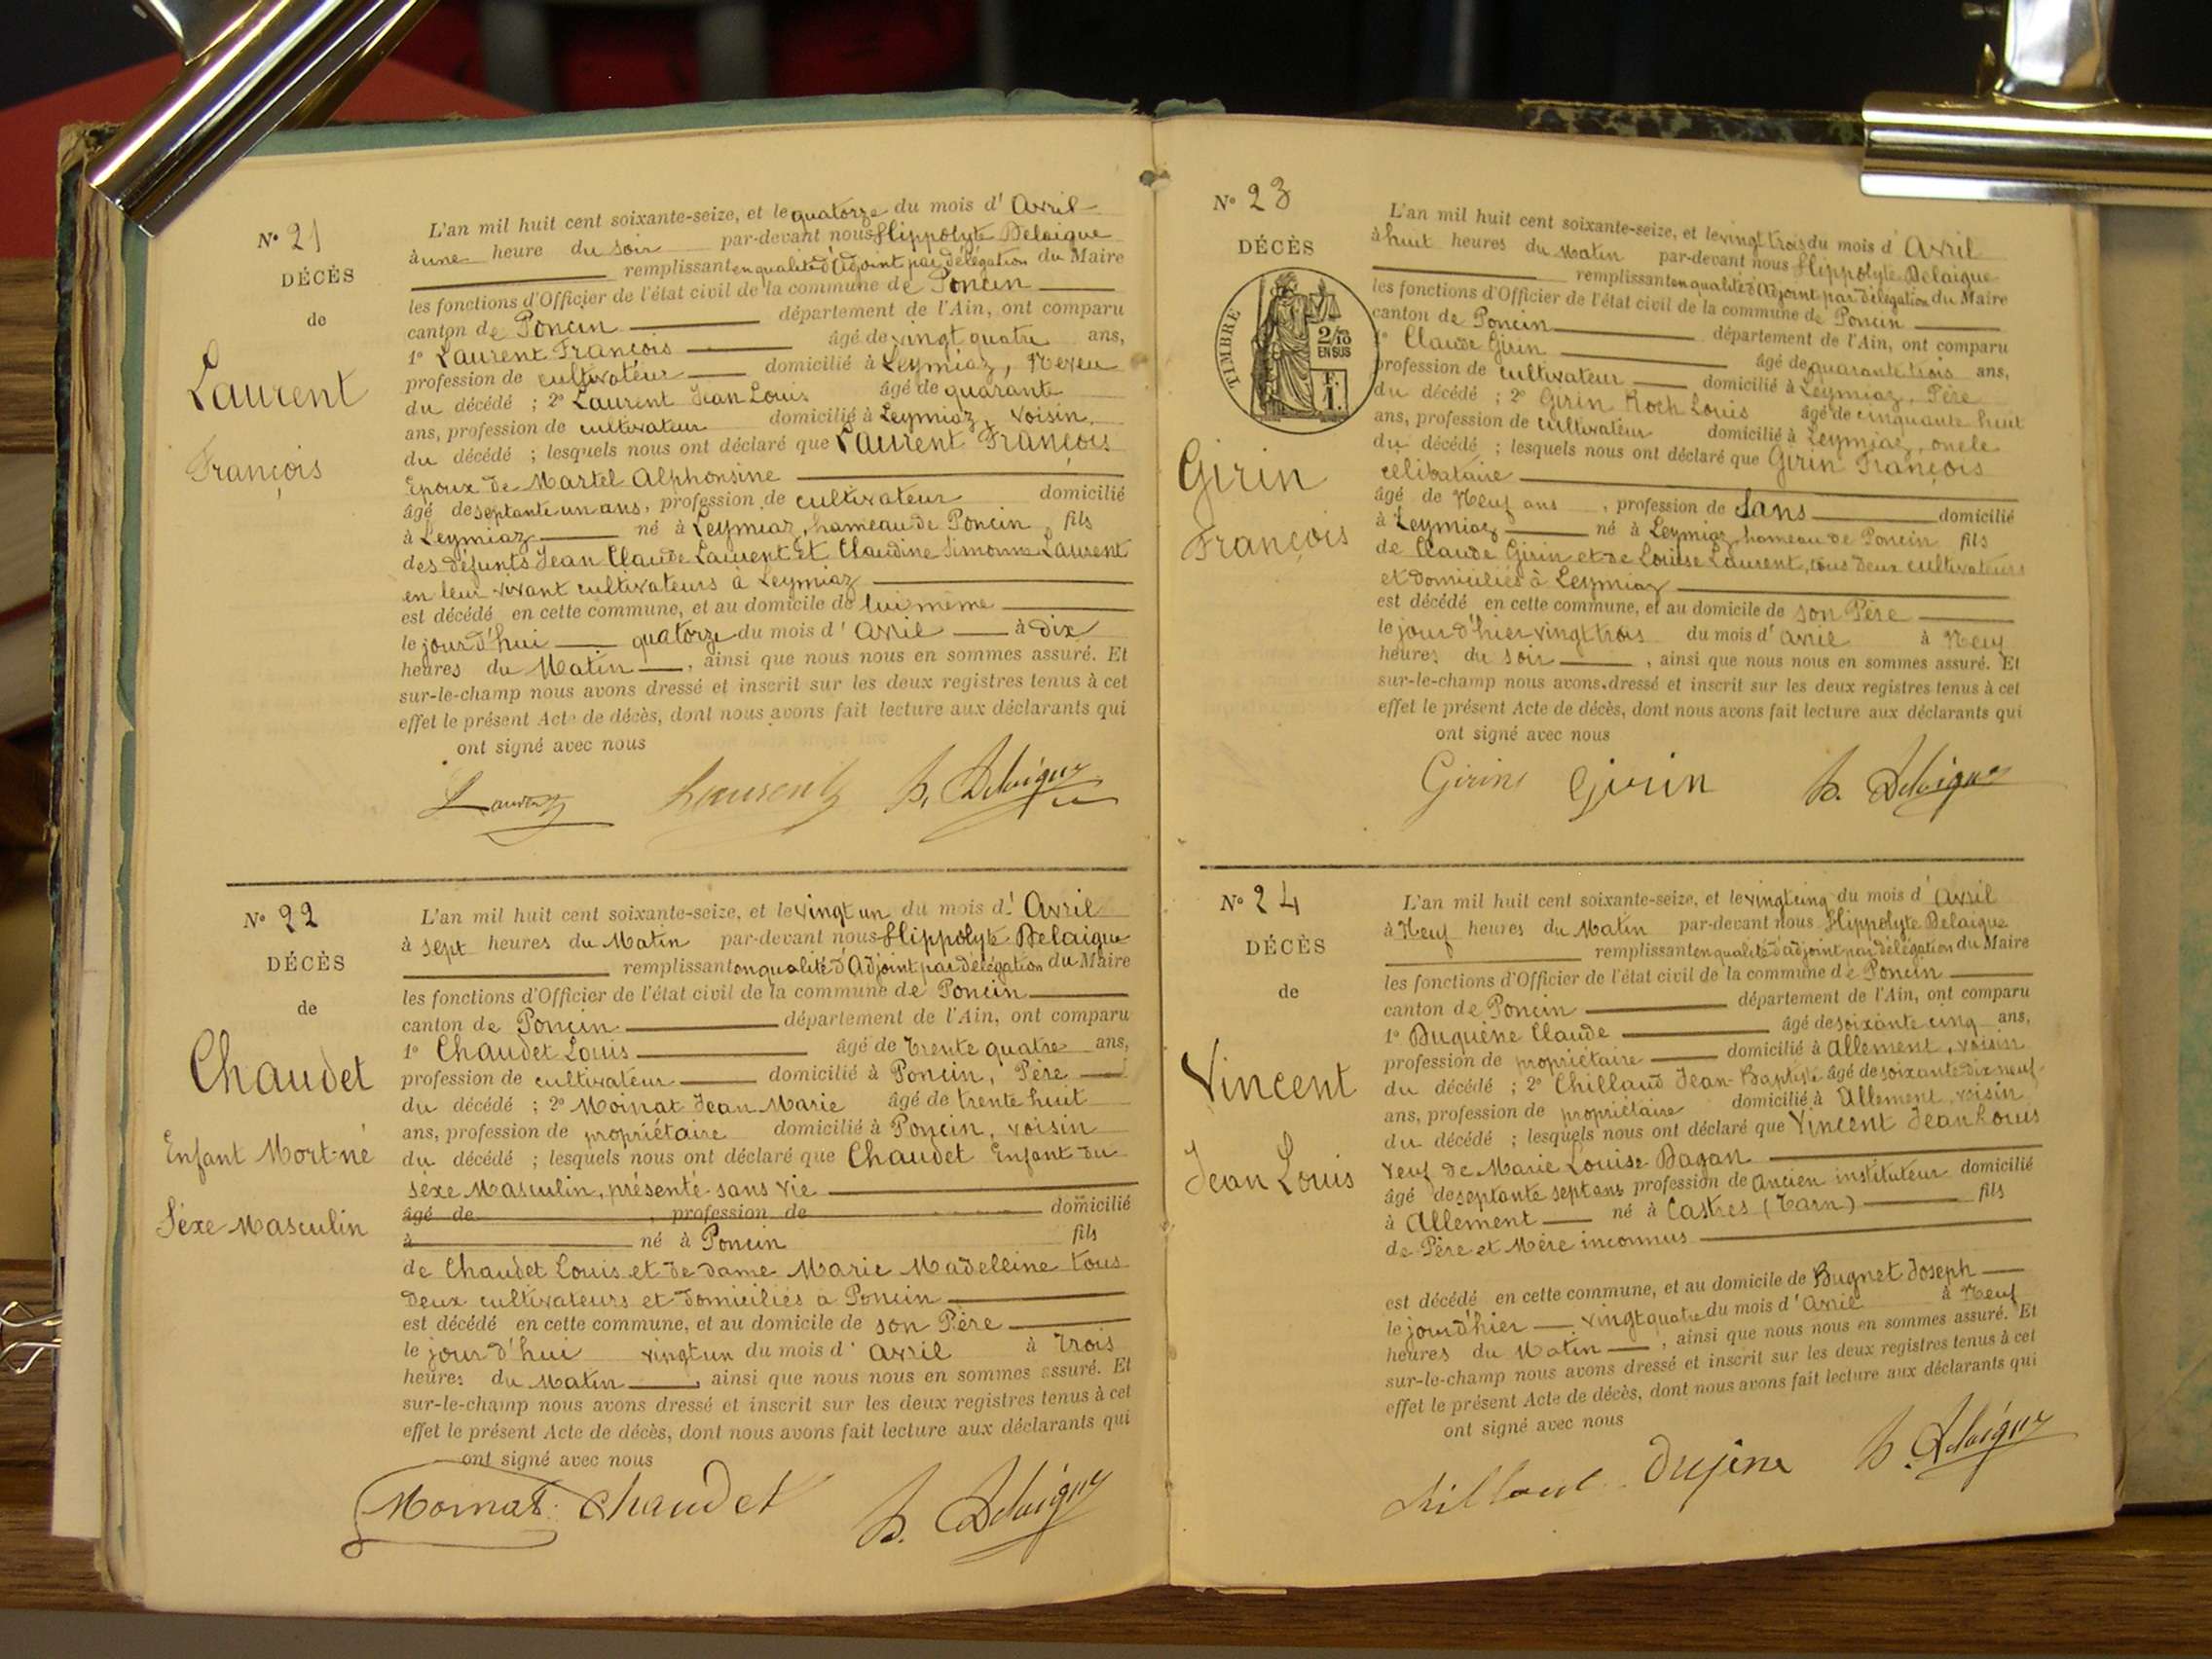 N° 21
DÉCÈS
de
Laurent
François
L'an mil huit cent soixante-seize, et le quatorze du mois d' Avril
à une heure du soir par-devant nous Hippolyte Delaigue
remplissant en qualité d'Adjoint par délégation du Maire
les fonctions d'Officier de l'état civil de la commune de Poncin
canton de Poncin département de l'Ain, ont comparu
1° Laurent François âgé de vingt quatre ans,
profession de cultivateur domicilié à Leymiaz, Neveu
du décédé ; 2° Laurent Jean Louis âgé de quarante
ans, profession de cultivateur domicilié à Leymiaz, voisin
du décédé ; lesquels nous ont déclaré que Laurent François
Epoux de Martel Alphonsine
âgé de septante un ans, profession de cultivateur domicilié
à Leymiaz né à Leymiaz, hameau de Poncin, fils
des défunts Jean Claude Laurent et Claudine Simonne Laurent
en leur vivant cultivateurs à Leymiaz
est décédé en cette commune, et au domicile de lui même
le jour d'hui quatorze du mois d' Avril à dix
heures du Matin, ainsi que nous nous en sommes assuré. Et
sur-le-champ nous avons dressé et inscrit sur les deux registres tenus à cet
effet le présent Acte de décès, dont nous avons fait lecture aux déclarants qui
ont signé avec nous
Laurent Laurent h. Delaigue
N° 22
DÉCÈS
de
Chaudet
Enfant Mort-né
Séxe Masculin
L'an mil huit cent soixante-seize, et le vingt un du mois d' Avril
à sept heures du Matin par-devant nous Hippolyte Delaigue
remplissant en qualité d'Adjoint par délégation du Maire
les fonctions d'Officier de l'état civil de la commune de Poncin
canton de Poncin département de l'Ain, ont comparu
1° Chaudet Louis âgé de trente quatre ans,
profession de cultivateur domicilié à Poncin, Père
du décédé ; 2° Moinat Jean Marie âgé de trente huit
ans, profession de propriétaire domicilié à Poncin, voisin
du décédé ; lesquels nous ont déclaré que Chaudet Enfant du
séxe Masculin, présenté sans vie
âgé de , profession de domicilié
à né à Poncin fils
de Chaudet Louis et de dame Marie Madeleine tous
deux cultivateurs et domiciliés à Poncin
est décédé en cette commune, et au domicile de son Père
le jour d'hui vingt un du mois d' Avril à trois
heures du Matin, ainsi que nous nous en sommes assuré. Et
sur-le-champ nous avons dressé et inscrit sur les deux registres tenus à cet
effet le présent Acte de décès, dont nous avons fait lecture aux déclarants qui
ont signé avec nous
Moinat Chaudet h. Delaigue
N° 23
DÉCÈS
TIMBRE
2/10
EN SUS
F.
1.
Girin
François
L'an mil huit cent soixante-seize, et le vingt trois du mois d' Avril
à huit heures du Matin par-devant nous Hippolyte Delaigue
remplissant en qualité d'Adjoint par délégation du Maire
les fonctions d'Officier de l'état civil de la commune de Poncin
canton de Poncin département de l'Ain, ont comparu
1° Claude Girin âgé de quarante trois ans,
profession de cultivateur domicilié à Leymiaz, Père
du décédé ; 2° Girin Roch Louis âgé de cinquante huit
ans, profession de cultivateur domicilié à Leymiaz, oncle
du décédé ; lesquels nous ont déclaré que Girin François
célibataire
âgé de Neuf ans, profession de Sans domicilié
à Leymiaz né à Leymiaz hameau de Poncin fils
de Claude Girin et de Louise Laurent, tous deux cultivateurs
et domiciliés à Leymiaz
est décédé en cette commune, et au domicile de son Père
le jour d'hier vingt trois du mois d' Avril à Neuf
heures du soir, ainsi que nous nous en sommes assuré. Et
sur-le-champ nous avons dressé et inscrit sur les deux registres tenus à cet
effet le présent Acte de décès, dont nous avons fait lecture aux déclarants qui
ont signé avec nous
Girin Girin h. Delaigue
N° 24
DÉCÈS
de
Vincent
Jean Louis
L'an mil huit cent soixante-seize, et le vingt cinq du mois d' Avril
à Neuf heures du Matin par-devant nous Hippolyte Delaigue
remplissant en qualité d'adjoint par délégation du Maire
les fonctions d'Officier de l'état civil de la commune de Poncin
canton de Poncin département de l'Ain, ont comparu
1° Duguène Claude âgé de soixante cinq ans,
profession de propriétaire domicilié à Allement, voisin
du décédé ; 2° Chillaud Jean-Baptiste âgé de soixante dix neuf
ans, profession de propriétaire domicilié à Allement, voisin
du décédé ; lesquels nous ont déclaré que Vincent Jean Louis
Veuf de Marie Louise Dagan
âgé de septante sept ans profession de Ancien instituteur domicilié
à Allement né à Castres (Tarn) fils
de Père et Mère inconnus
est décédé en cette commune, et au domicile de Bugnet Joseph
le jour d'hier vingt quatre du mois d' Avril à Neuf
heures du Matin, ainsi que nous nous en sommes assuré. Et
sur-le-champ nous avons dressé et inscrit sur les deux registres tenus à cet
effet le présent Acte de décès, dont nous avons fait lecture aux déclarants qui
ont signé avec nous
Chillaud Dujene h. Delaigue